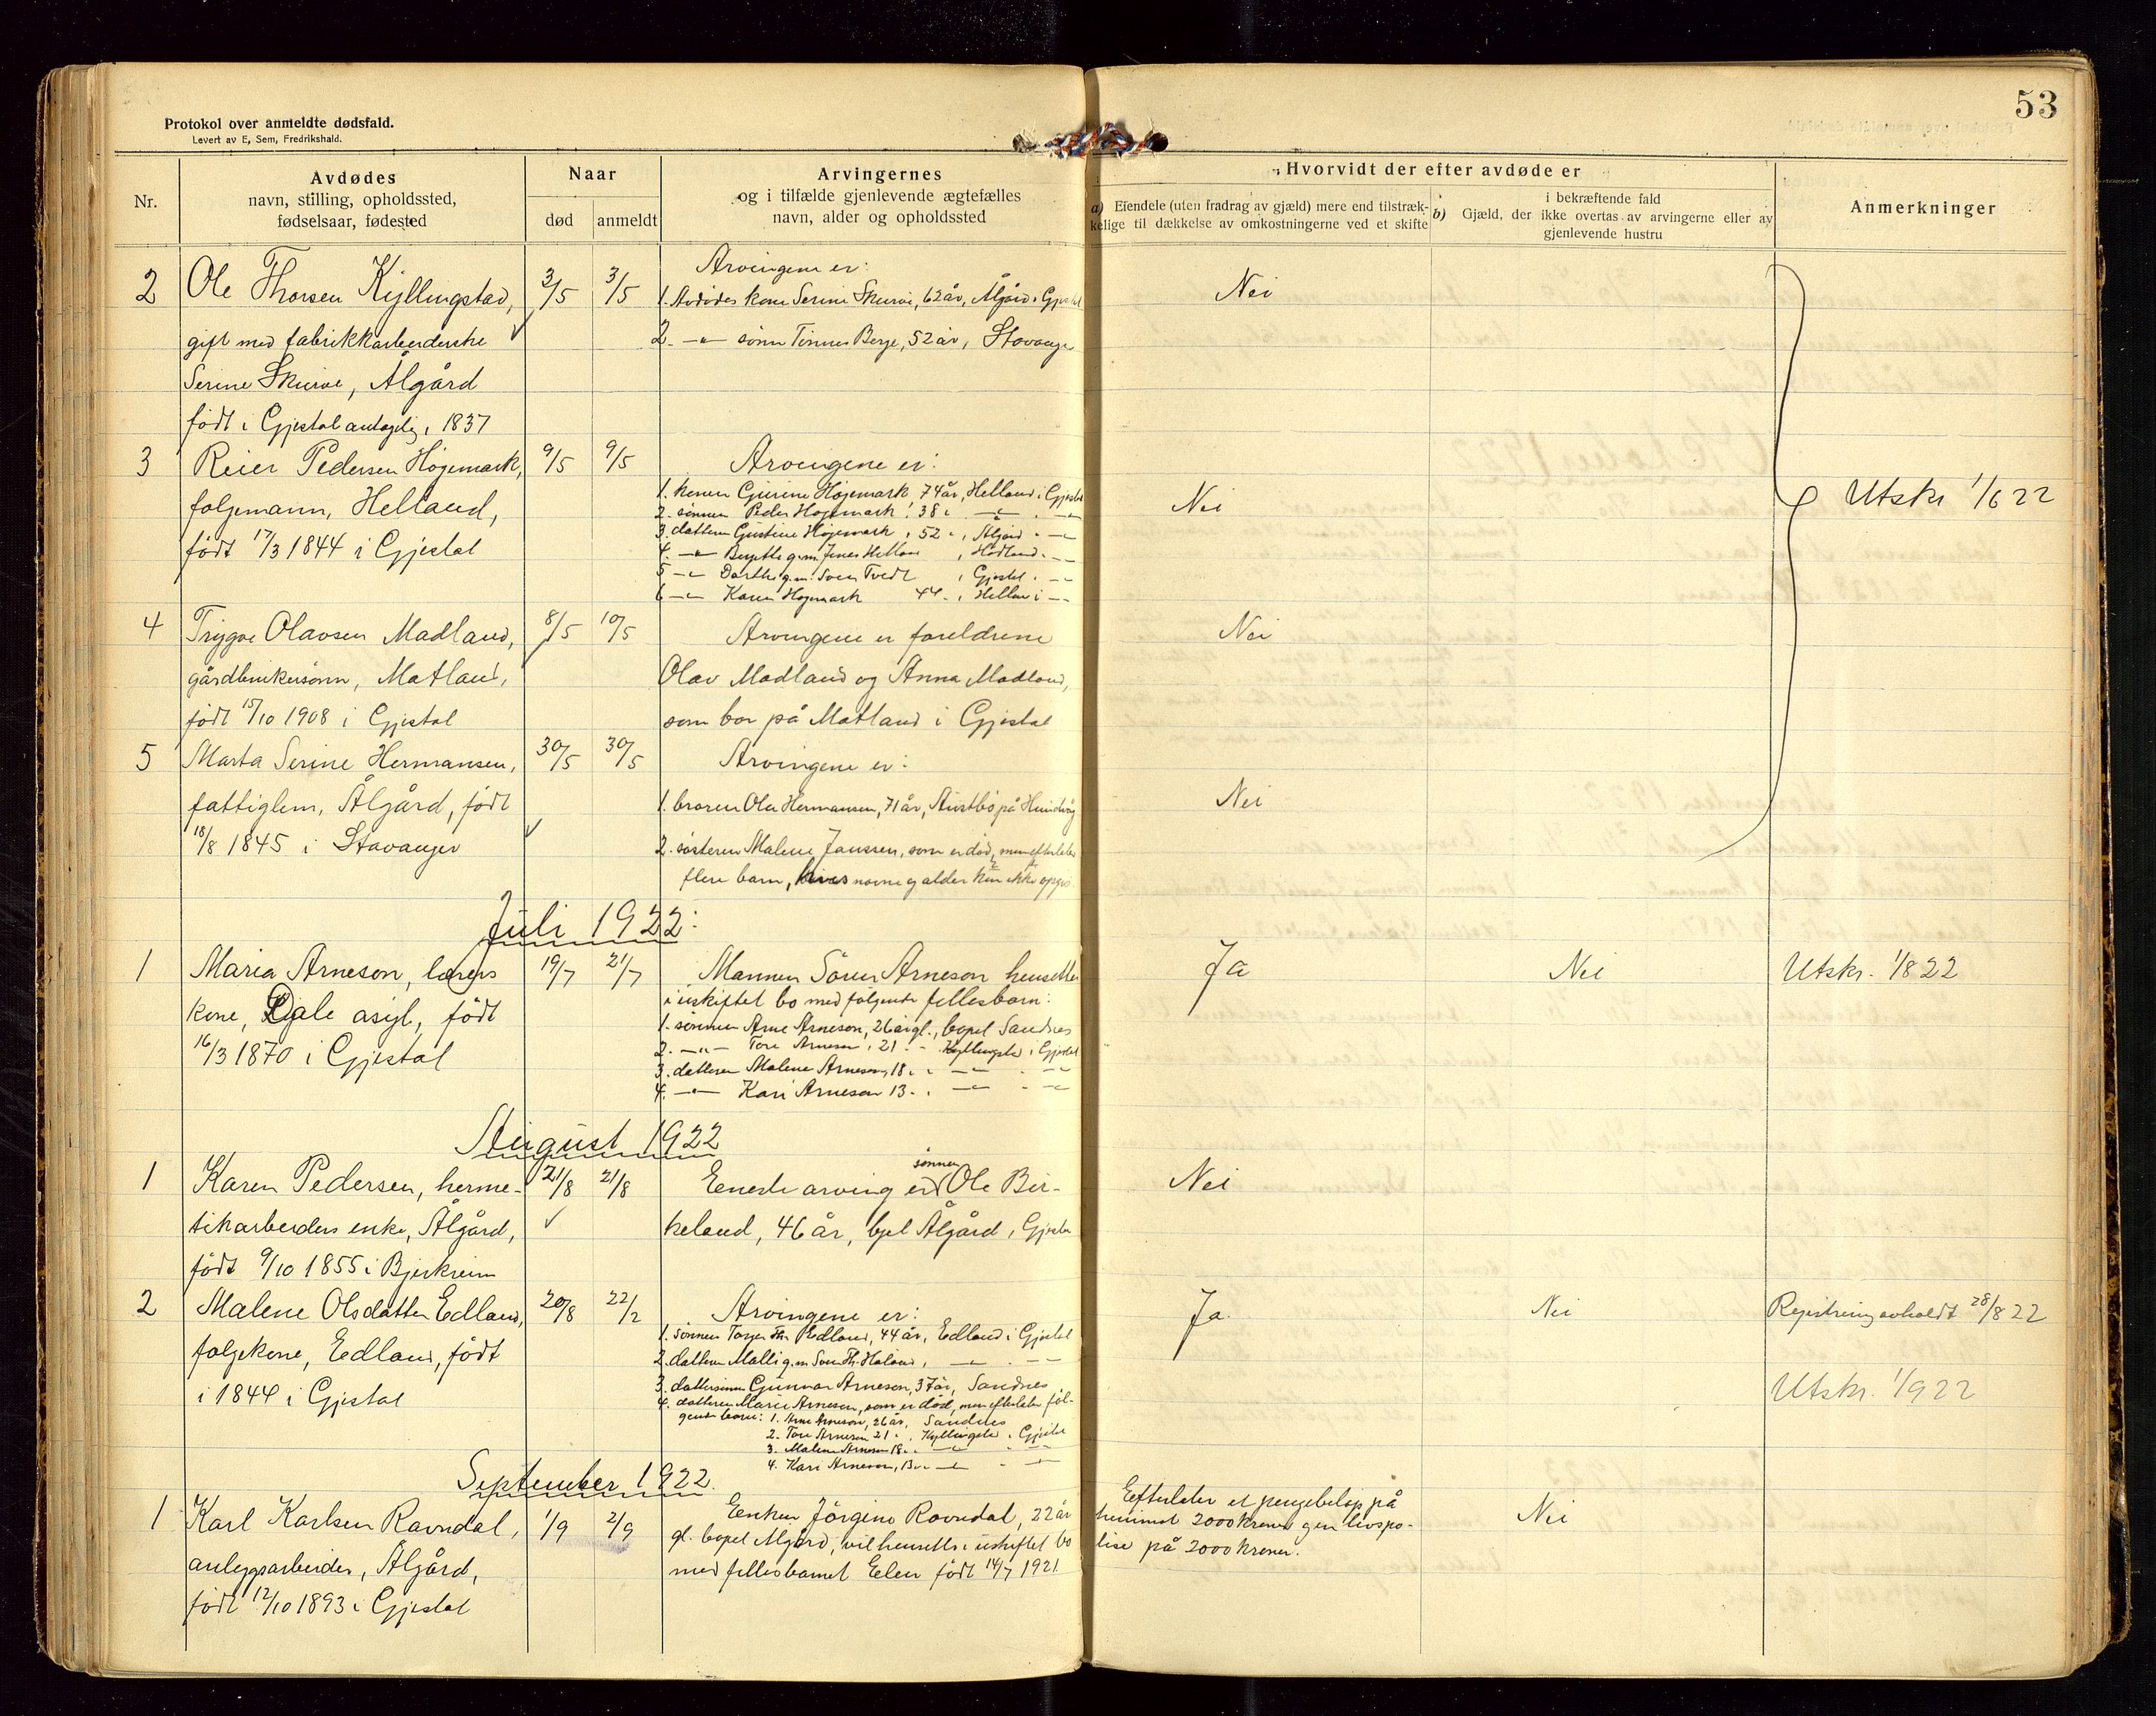 53
Protokol over anmeldte dødsfald.
Levert av E. Sem, Fredrikshald.
Nr.
Avdødes
navn, stilling, opholdssted,
fødselsaar, fødested
Naar
død
anmeldt
Arvingernes
og i tilfælde gjenlevende ægtefælles
navn, alder og opholdssted
Hvorvidt der efter avdøde er
a) Eiendele (uten fradrag av gjæld) mere end tilstræk-
kelige til dækkelse av omkostningerne ved et skifte
b)
i bekræftende fald
Gjæld, der ikke overtas av arvingerne eller av
gjenlevende hustru
Anmerkninger
2
Ole Thorsen Kyllingstad,
gift med fabrikkarbeiderske
Serine Skurve, Ålgård
født i Gjestal antagelig i 1837
3/5
3/5
Arvingene er:
1. Avdødes kone Serine Skurve, 62 år, Ålgård i Gjestal
2. -"- sønn Tønnes Berge, 52 år, Stavanger
Nei
3
Reier Pedersen Høgemark,
folgemann, Helland,
født 17/3 1844 i Gjestal
9/5
9/5
Arvingene er:
1. konen Gurine Høgemark, 74 år, Helland i Gjestal
2. sønnen Peder Høgemark, 38 " -"- " -"-
3. datteren Gustine Høgemark, 52 ", Ålgård " -"-
4. -"- g.m. Jonas Helland, Hodland " -"-
5. -"- Dorthe g.m. Sven Tvedt, Gjestal " -"-
6. -"- Karen Høgemark 44 ", Helland i -"-
Nei
Utskr 1/6 22
4
Trygve Olavsen Madland,
gårdbrukersønn, Matland,
født 15/10 1908 i Gjestal
8/5
10/5
Arvingene er foreldrene
Olav Madland og Anna Madland,
som bor på Matland i Gjestal
Nei
5
Marta Serine Hermansen,
fattiglem, Ålgård, født
18/8 1845 i Stavanger
30/5
30/5
Arvingene er:
1. broren Ola Hermansen, 71 år, Austbø på Hundvåg
2. søsteren Malene Janssen, som er død, men efterlater
flere barn, hvis navne og alder kan ikke opgis
Nei
Juli 1922:
1
Maria Arneson, lærers
kone, Dale asyl, født
16/3 1870 i Gjestal
19/7
21/7
Mannen Sören Arneson hensetter
i uskiftet bo med følgende fellesbarn:
1. sønnen Arne Arneson, 26 år gl., bopel Sandnes
2. -"- Tore Arneson, 21 " - Kyllingstad i Gjestal
3. datteren Malene Arneson, 18 " " -"- " -"-
4. -"- Kari Arneson 13 " " -"- " -"-
Ja
Nei
Utskr. 1/8 22
August 1922
1
Karen Pedersen, herme-
tikarbeiders enke, Ålgård,
født 9/10 1855 i Bjerkreim
21/8
21/8
Eneste arving er sønnen Ole Bir-
keland, 46 år, bpl Ålgård i Gjestal
Nei
2
Malene Olsdatter Edland,
folgekone, Edland, født
i 1844 i Gjestal
20/8
22/2
Arvingene er:
1. sønnen Torger Th. Edland, 44 år, Edland i Gjestal
2. datteren Malli g.m. Sven Th. Haland, -"- " -"-
3. dattersønnen Gunnar Arneson, 37 år, Sandnes
4. datteren Marie Arneson, som er død, men efterlater føl-
gende barn: 1. Arne Arneson, 26 år, Sandnes
2. Tore Arneson 21 ", Kyllingstad i Gjestal
3. Malene Arneson 18 " -"- " -"-
4. Kari Arneson, 13 " -"- " -"-
Ja
Nei
Registrering avholdt 28/8 22
Utskr. 1/9 22
September 1922.
1
Karl Karlsen Ravndal,
anleggsarbeider, Ålgård,
født 12/10 1893 i Gjestal
1/9
2/9
Enken Jörgine Ravndal, 22 år
gl. bopel Ålgård, vil hensette i uskiftet bo
med fellesbarnet Elen født 14/7 1921
Efterlater et pengebeløp på
2000 kroner livspo-
lise på 2000 kroner.
Nei